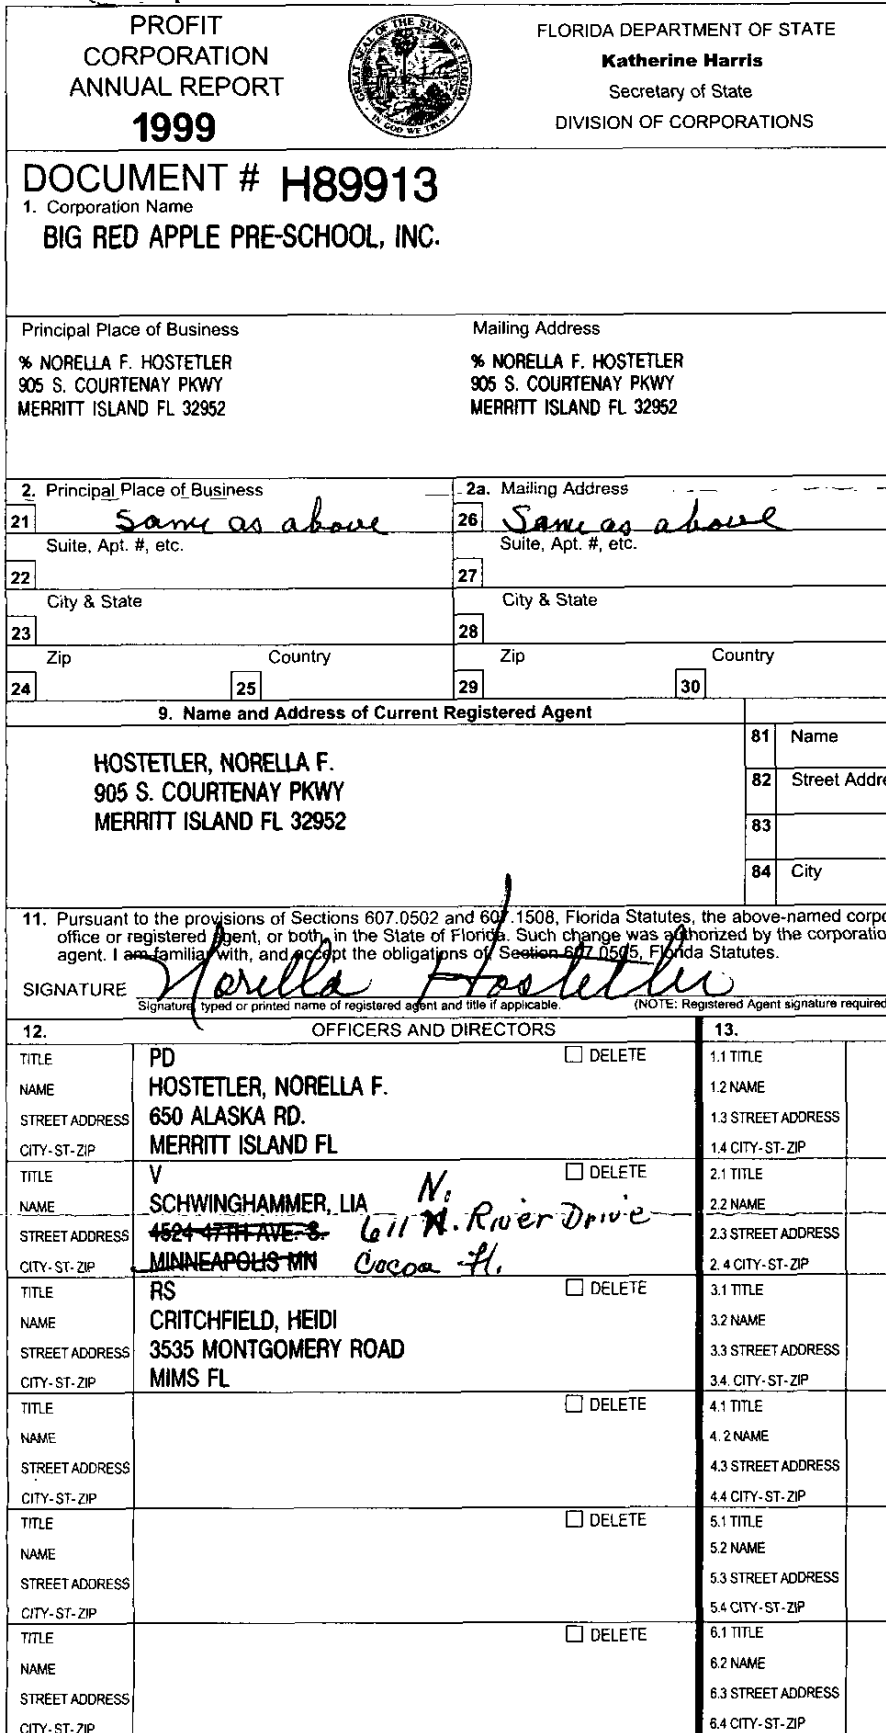 PROFIT
CORPORATION
ANNUAL REPORT
1999
GREAT SEAL OF THE STATE OF FLORIDA
IN GOD WE TRUST
FLORIDA DEPARTMENT OF STATE
Katherine Harris
Secretary of State
DIVISION OF CORPORATIONS
DOCUMENT # H89913
1. Corporation Name
BIG RED APPLE PRE-SCHOOL, INC.
Principal Place of Business
% NORELLA F. HOSTETLER
905 S. COURTENAY PKWY
MERRITT ISLAND FL 32952
Mailing Address
% NORELLA F. HOSTETLER
905 S. COURTENAY PKWY
MERRITT ISLAND FL 32952
2. Principal Place of Business
21 Same as above
Suite, Apt. #, etc.
22
City & State
23
Zip Country
24 25
2a. Mailing Address
26 Same as above
Suite, Apt. #, etc.
27
City & State
28
Zip Country
29 30
9. Name and Address of Current Registered Agent
HOSTETLER, NORELLA F.
905 S. COURTENAY PKWY
MERRITT ISLAND FL 32952
81 Name
82 Street Addre
83
84 City
11. Pursuant to the provisions of Sections 607.0502 and 607.1508, Florida Statutes, the above-named corpo
office or registered agent, or both, in the State of Florida. Such change was authorized by the corporatio
agent. I am familiar with, and accept the obligations of, Section 607.0505, Florida Statutes.
SIGNATURE Norella Hostetler
Signature, typed or printed name of registered agent and title if applicable. (NOTE: Registered Agent signature required
12. OFFICERS AND DIRECTORS 13.
TITLE PD DELETE 1.1 TITLE
NAME HOSTETLER, NORELLA F. 1.2 NAME
STREET ADDRESS 650 ALASKA RD. 1.3 STREET ADDRESS
CITY-ST-ZIP MERRITT ISLAND FL 1.4 CITY-ST-ZIP
TITLE V DELETE 2.1 TITLE
NAME SCHWINGHAMMER, LIA N. 2.2 NAME
STREET ADDRESS 4524 47TH AVE. S. 611 N. River Drive 2.3 STREET ADDRESS
CITY-ST-ZIP MINNEAPOLIS MN Cocoa Fl. 2.4 CITY-ST-ZIP
TITLE RS DELETE 3.1 TITLE
NAME CRITCHFIELD, HEIDI 3.2 NAME
STREET ADDRESS 3535 MONTGOMERY ROAD 3.3 STREET ADDRESS
CITY-ST-ZIP MIMS FL 3.4. CITY-ST-ZIP
TITLE DELETE 4.1 TITLE
NAME 4.2 NAME
STREET ADDRESS 4.3 STREET ADDRESS
CITY-ST-ZIP 4.4 CITY-ST-ZIP
TITLE DELETE 5.1 TITLE
NAME 5.2 NAME
STREET ADDRESS 5.3 STREET ADDRESS
CITY-ST-ZIP 5.4 CITY-ST-ZIP
TITLE DELETE 6.1 TITLE
NAME 6.2 NAME
STREET ADDRESS 6.3 STREET ADDRESS
CITY-ST-ZIP 6.4 CITY-ST-ZIP